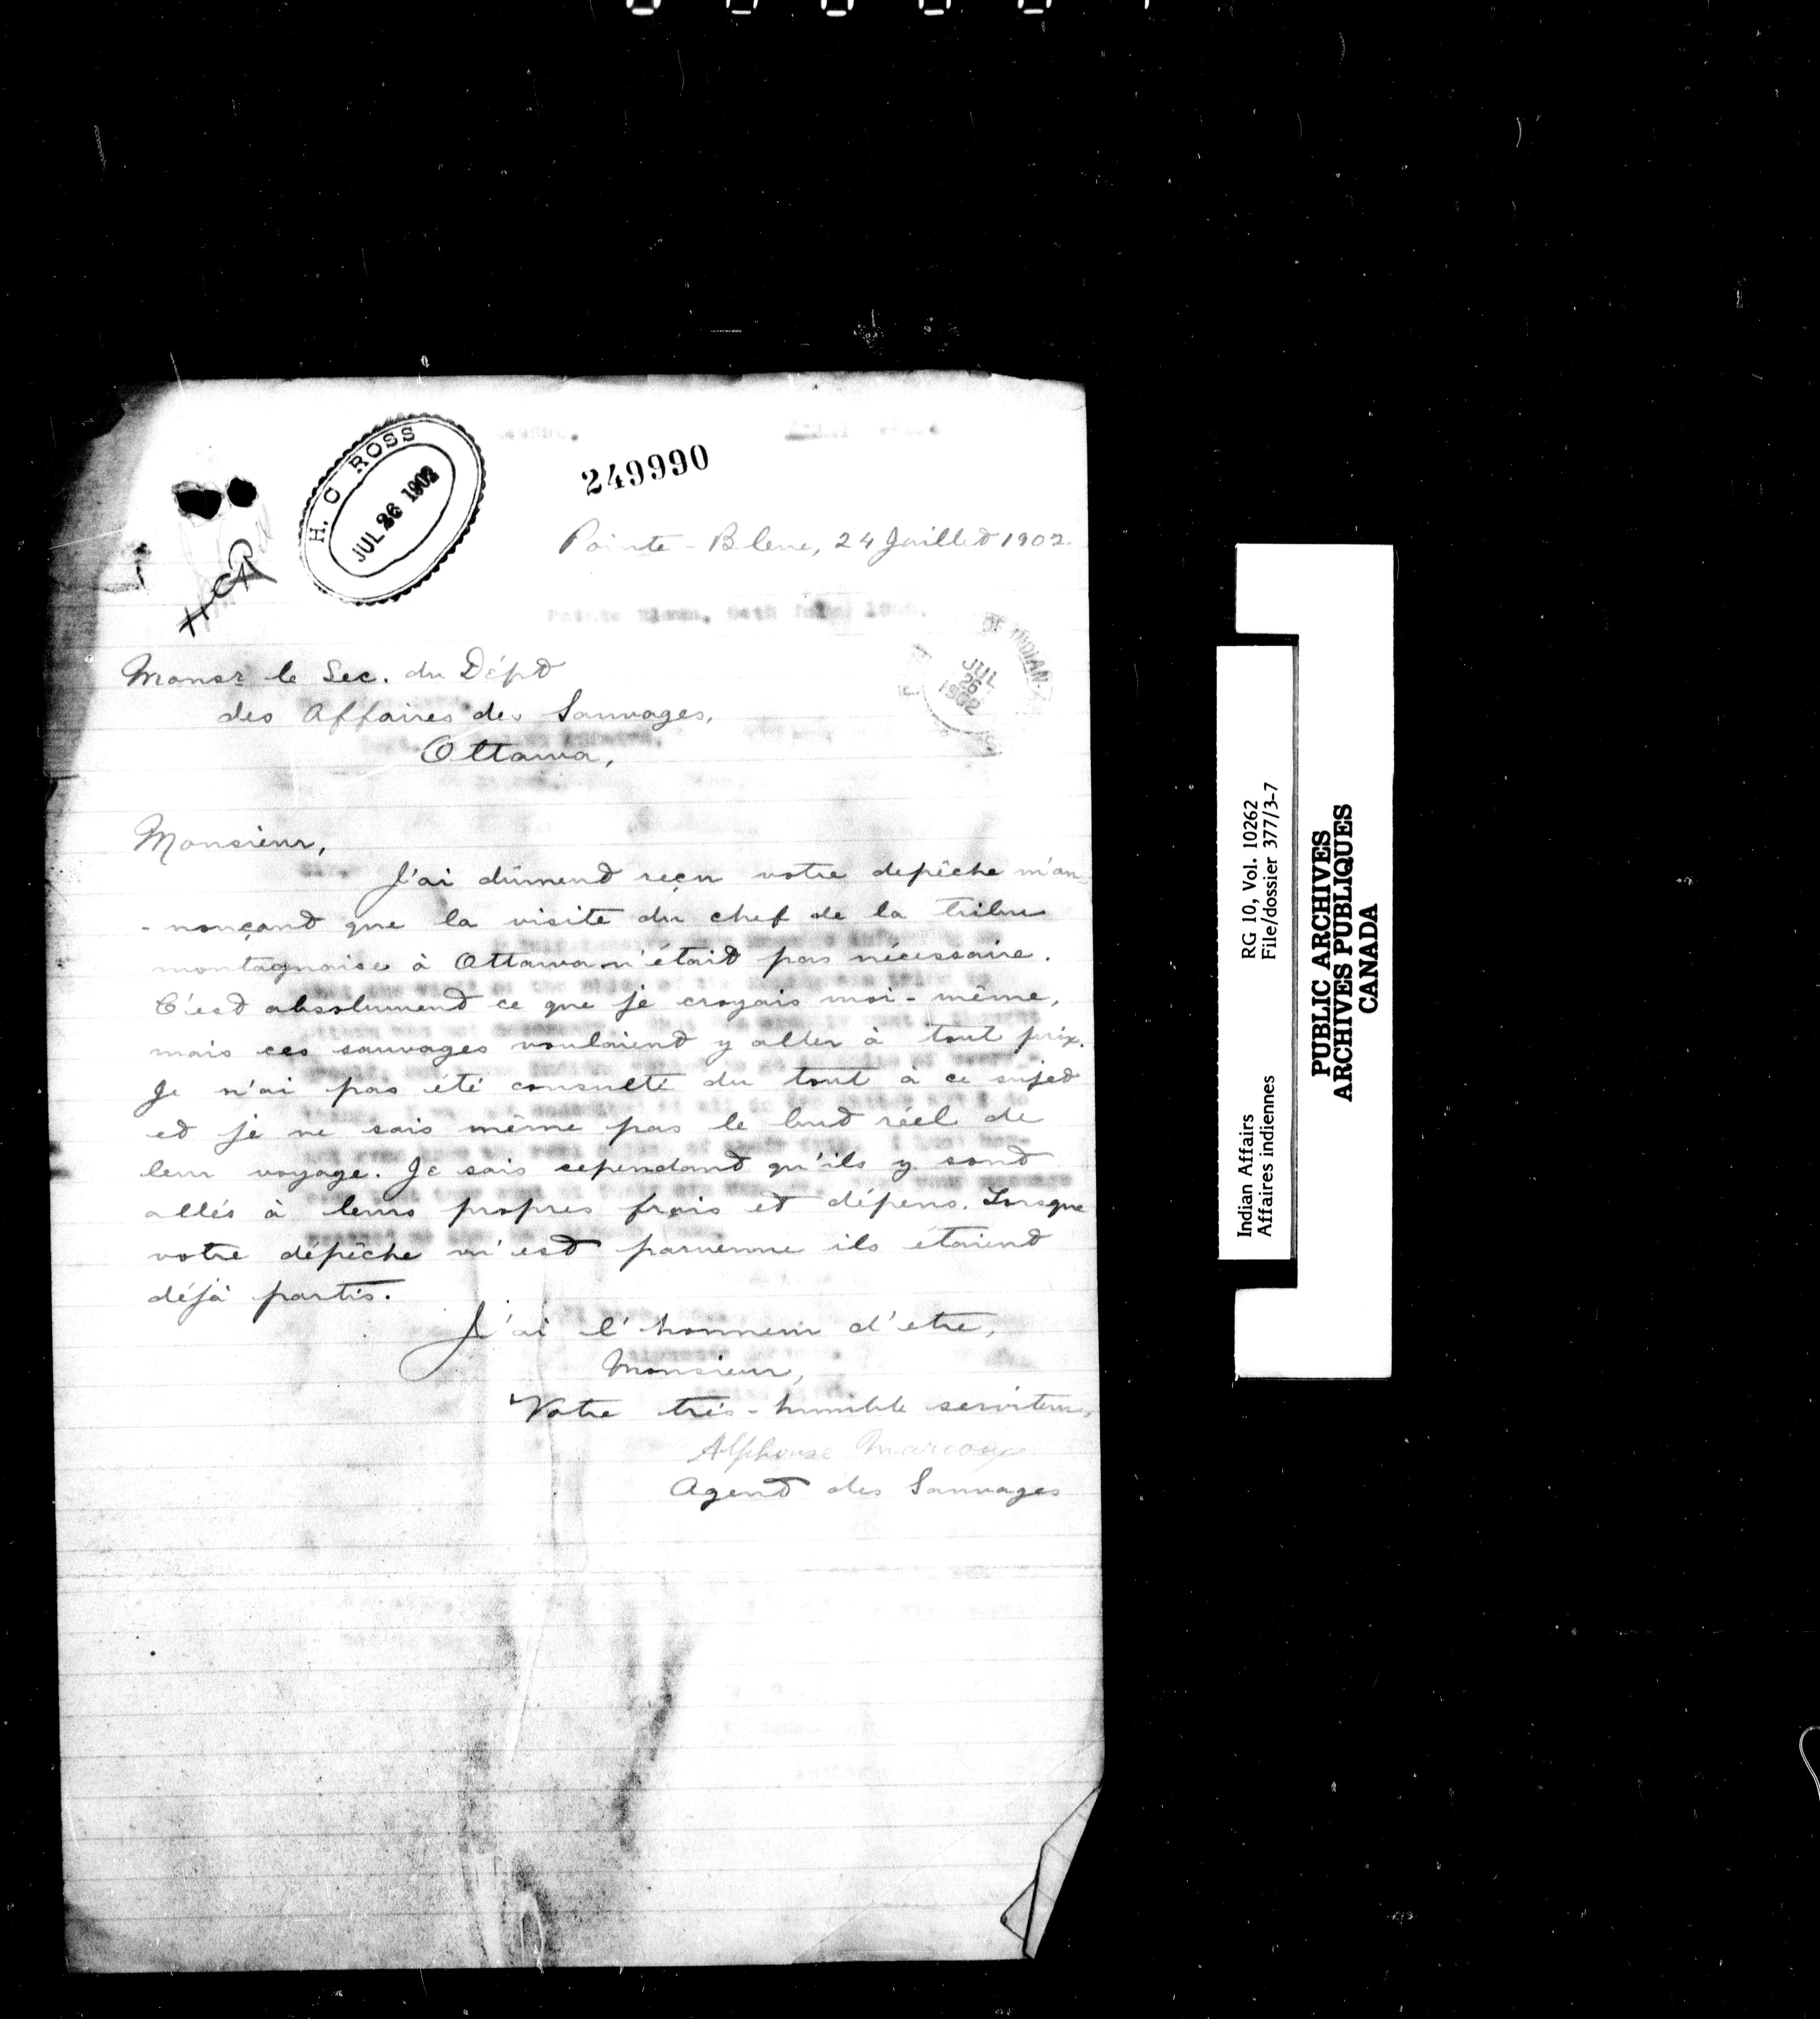 H. C ROSS
JUL 26 1902
249990
HCR
Pointe-Bleue, 24 Juillet 1902.
OF INDIAN
JUL
26
1902
Monsr le Sec. du Dépt
des Affaires des Sauvages,
Ottawa,
Monsieur,
J'ai dûment reçu votre depêche m'an-
-nonçant que la visite du chef de la tribu
montagnaise à Ottawa n'était pas nécessaire.
C'est absolument ce que je croyais moi-même,
mais ces sauvages voulaient y aller à tout prix.
Je n'ai pas été consulté du tout à ce sujet
et je ne sais même pas le but réel de
leur voyage. Je sais cependant qu'ils y sont
allés à leurs propres frais et dépens. Lorsque
votre dépêche m'est parvenue ils étaient
déjà partis.
J'ai l'honneur d'etre,
Monsieur,
Votre très-humble serviteur,
Alphonse Marcoux
Agent des Sauvages
Indian Affairs RG 10, Vol. 10262
Affaires indiennes File/dossier 377/3-7
PUBLIC ARCHIVES
ARCHIVES PUBLIQUES
CANADA